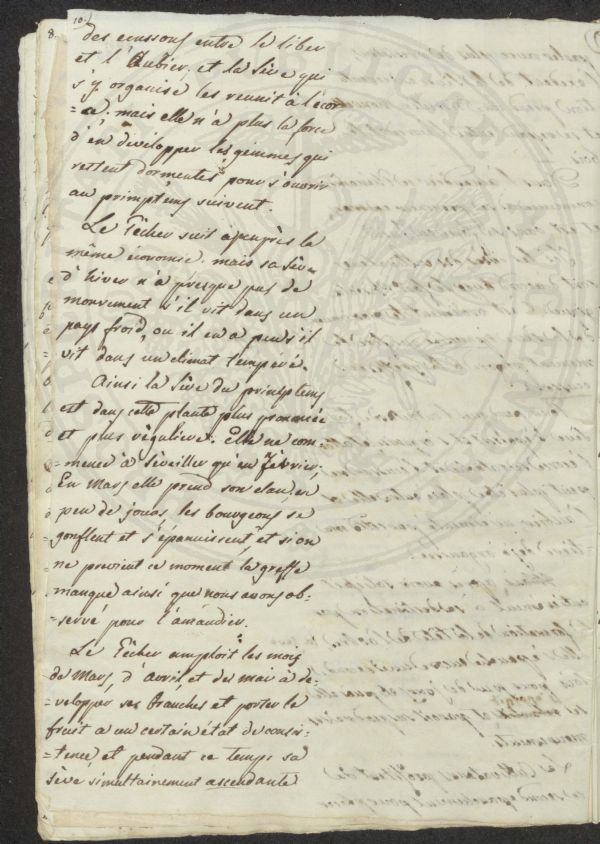 8. 10.
des ecussons entre le liber
et l'Aubier, et la sève qui
s'y organise les reunit à l'écor
=ce. mais elle n'a plus la force
d'en développer les gemmes qui
restent dormentes, pour s'ouvrir
au primptems suivent.
Le Pêcher suit apeuprès la
même économie. mais sa sève
d'hiver n'a presque pas de
mouvement s'il vit dans un
pays froid, ou il en a peu s'il
vit dans un climat tempéré.
Ainsi la sève du primptems
est dans cette plante plus prononcée
et plus régulière. Elle ne com
=mence à s'éveiller qu'en Février;
En Mars elle prend son élan, en
peu de jours, les bourgeons se
gonflent et s'épanuissent, et si on
ne previent ce moment la greffe
manque ainsi que nous avons ob-
servé pour l'amandier.
Le Pêcher amploit les mois
de Mars, d'Avril et de mai à dé-
=velopper ses branches et porter le
fruit a un certain état de consis-
=tence et pendant ce temps sa
sève simultairement ascendante